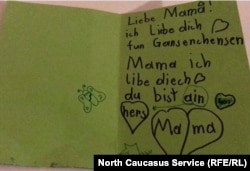 Liebe Mama!
ich Liebe dich
fun Gansenchensen
Mama ich
libe diech
du bist ain
hers
Mama
North Caucasus Service (RFE/RL)